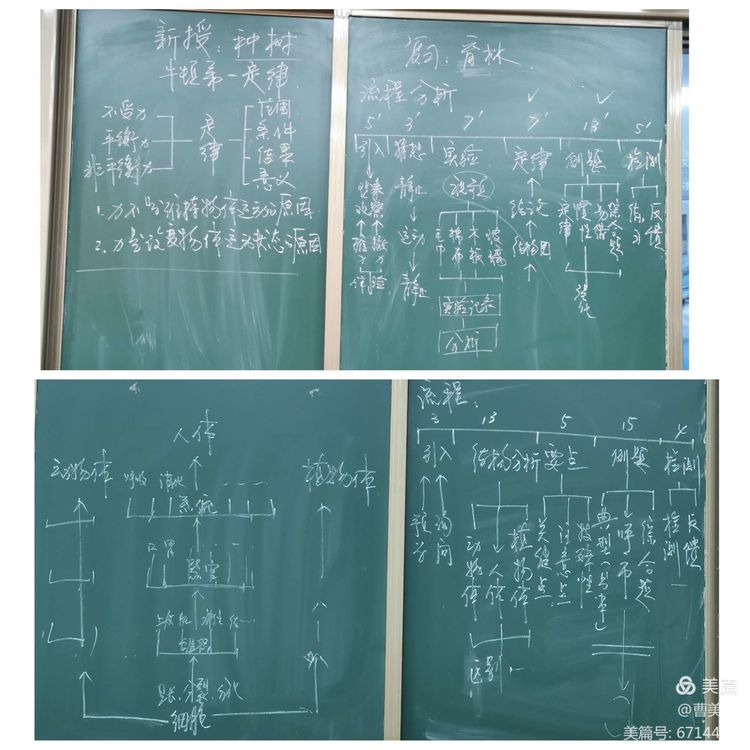 新授：种树
牛顿第一定律
不受力
平衡力
非平衡力
定律
范围
条件
结果
意义
1.力不是维持物体运动的原因
2.力是改变物体运动状态的原因
复习：育林
流程分析
5' 3' 7' 7' 13' 5'
引入 猜想 实验 定律 例题 检测
现象
观察
推力
撤力
体验
静止
运动
静止
毛巾
棉布
木板
玻璃
实验记录
分析
结论
定律
惯性
综合题
强化
练习
反馈
人体
动物体
植物体
呼吸 消化
系统
口 胃
器官
组织
生长、分裂、分化
细胞
流程：
3 13 5 15 4
引入 结构分析 要点 例题 检测
询问
动物体
人体
植物体
区别
关键点
注意点
典型
综合题
检测
反馈
美篇
@曹美
美篇号: 67144